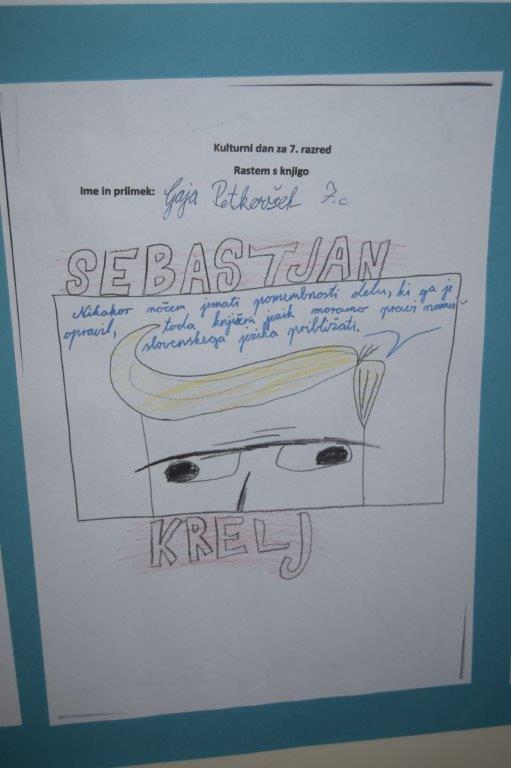 Kulturni dan za 7. razred
Rastem s knjigo
Ime in priimek: Gaja Petkovšek 7.c
SEBASTJAN
Nikakor nočem jemati pomembnosti delu, ki ga je
opravil, toda knjižni jezik moramo pravi naravi
slovenskega jezika približati.
KRELJ